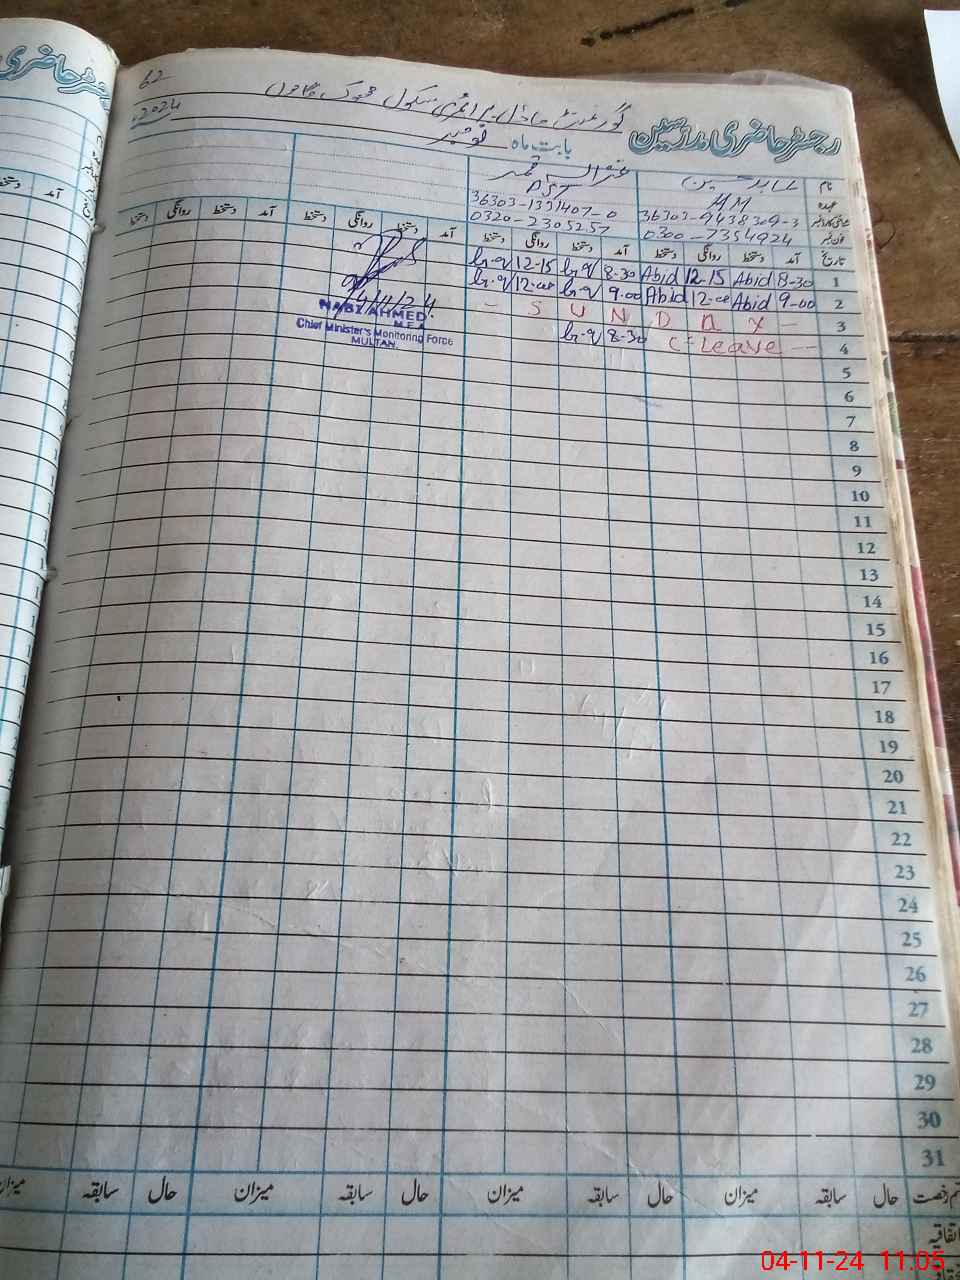 رجسٹر حاضری مدرسین
گورنمنٹ ماڈل پرائمری سکول
62
بابت ماہ نومبر 2024ء
نام عابد حسین
عہدہ HM PST
36303-9438309-3 36303-1331407-0
0300-7354924 0320-2305257
تاریخ آمد دستخط روانگی دستخط آمد دستخط روانگی دستخط آمد دستخط روانگی دستخط آمد دستخط روانگی دستخط
1 8-30 Abid 12-15 Abid 8-30 12-15
2 9-00 Abid 12-00 Abid 9-00 12-00
3 S U N D A Y
4 C-Leave 8-30
5
6
7
8
9
10
11
12
13
14
15
16
17
18
19
20
21
22
23
24
25
26
27
28
29
30
31
4/11/24
NAZ AHMED
M.E.A
Chief Minister's Monitoring Force
MULTAN.
قسم رخصت حال سابقہ میزان حال سابقہ میزان حال سابقہ میزان حال سابقہ میزان
اتفاقیہ
رجسٹر حاضری
آمد
04-11-24 11.05